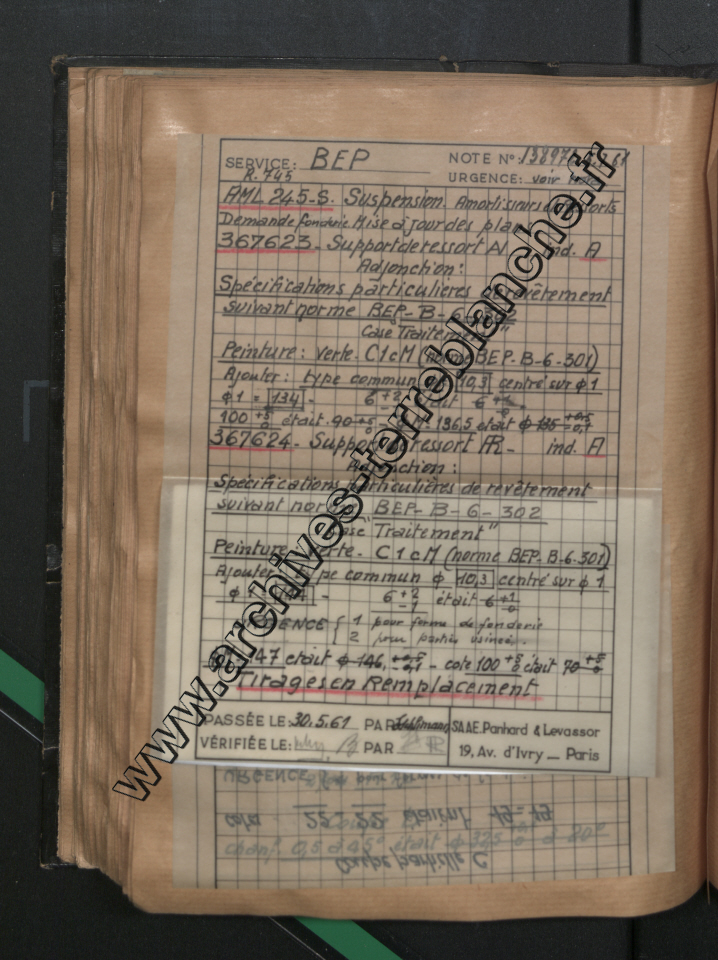 SERVICE: BEP NOTE N°: 
R.745 URGENCE: voir
AML 245-S. Suspension. Amortisseurs
Demande fonderie Mise à jour des
367623. Support de ressort ind. A
Adjonction:
Spécifications particulières revêtement
suivant norme BEP-B-6-
Case Traitement"
Peinture: verte. C1cM (norme BEP-B-6-301)
Ajouter: type commun 10,3 centré sur φ1
φ1 = 134 - 6 +2 était 6
100 +5 0 était 90 +5 136,5 était φ 135 +0,5 -0,7
367624. Support ressort AR - ind. A
Adjonction:
Spécifications particulières de revêtement
suivant BEP-B-6-302
Case "Traitement"
Peinture verte. C1cM (norme BEP-B-6-301)
Ajouter type commun φ 10,3 centré sur φ1
φ1 - 6 +2 -1 était 6 +1 -0
{ 1 pour forme de fonderie
2 pour parties usinées.
147 était φ 146, - cote 100 +5 0 était 90 +5 0
Tirages en Remplacement
PASSÉE LE: 30.5.61 PAR S.A.A.E. Panhard & Levassor
VÉRIFIÉE LE: PAR 19, Av. d'Ivry - Paris
www.archives-terreblanche.fr
URGENCE
cota 22 - 22 étaient 19 - 19
chanf. 0,5 à 45° était φ 325 à 20°
Coupe partielle C